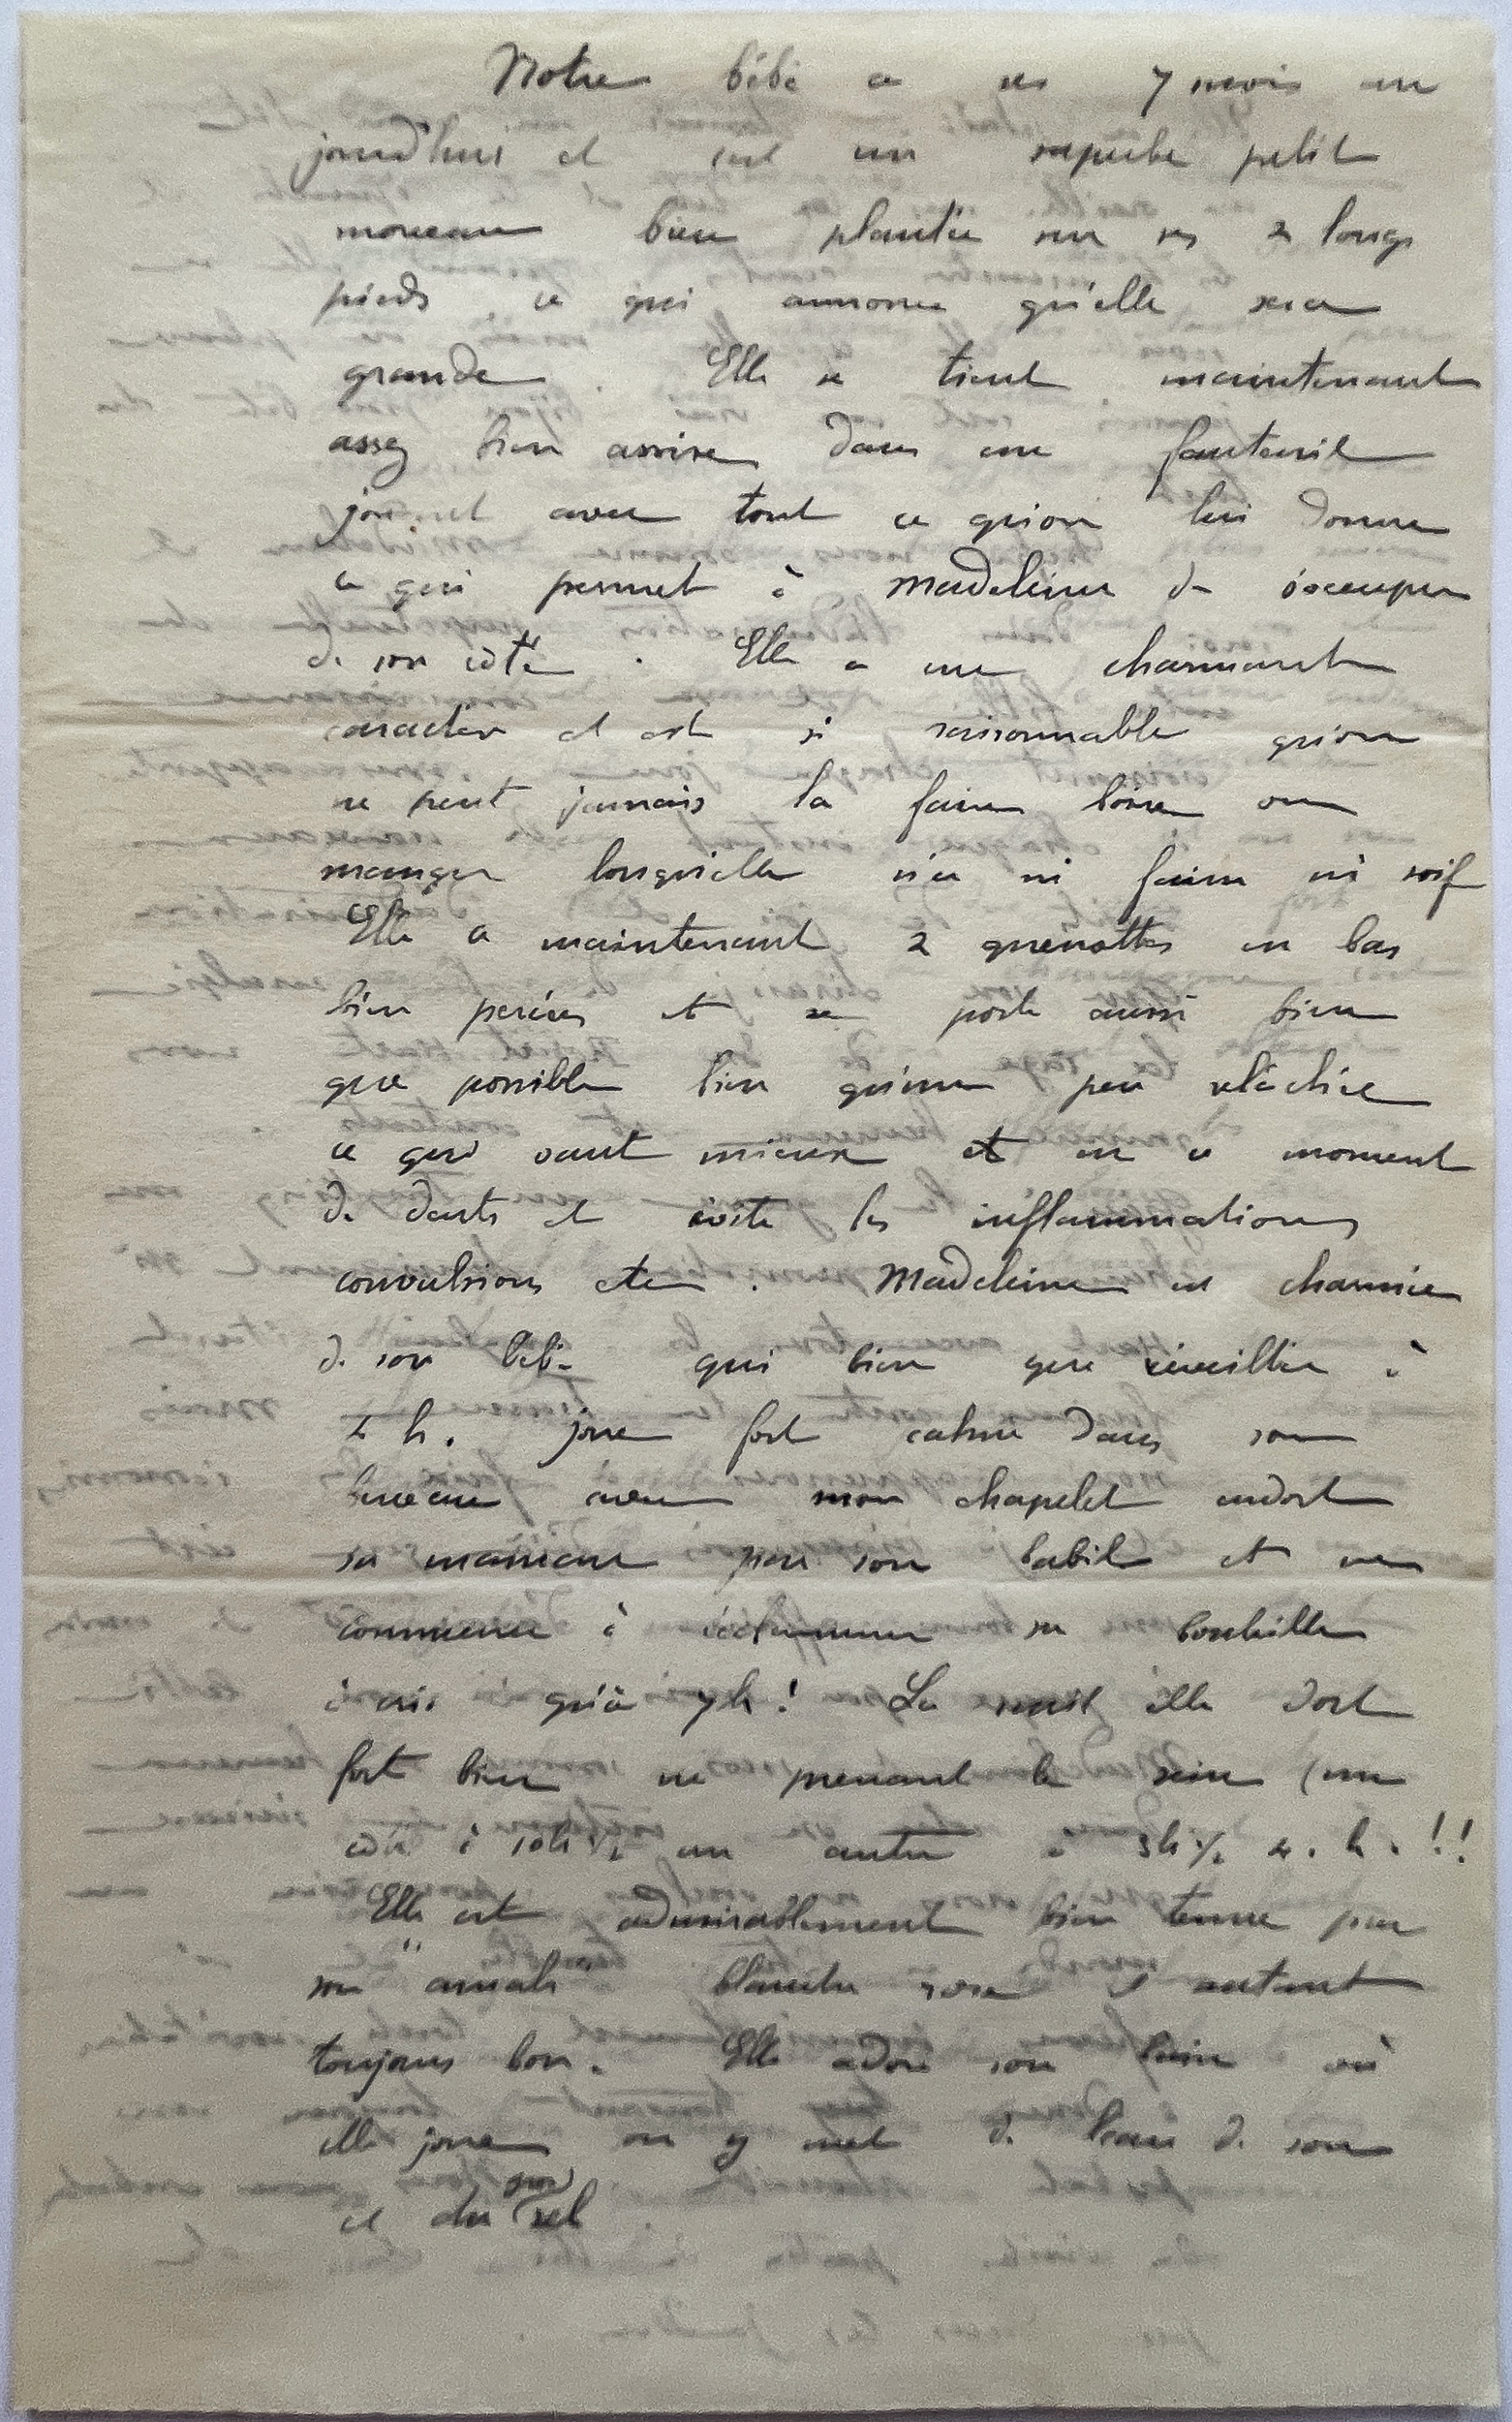 Notre bébé a ses 7 mois au
jourd'hui et est un superbe petit
morceau bien plantée sur ses 2 longs
pieds ce qui annonce qu'elle sera
grande. Elle se tient maintenant
assez bien assise dans un fauteuil
jouant avec tout ce qu'on lui donne
ce qui permet à Madeleine de s'occuper
de son côté. Elle a un charmant
caractère et est si raisonnable qu'on
ne peut jamais la faire boire ou
manger lorsqu'elle n'a ni faim ni soif
Elle a maintenant 2 quenottes en bas
bien percées et se porte aussi bien
que possible bien qu'un peu relâchée
ce qui vaut mieux et en ce moment
de dents et évite les inflammations
convulsions etc. Madeleine est charmée
de son bébé qui bien que réveillée à
h. joue fort calme dans son
berceau avec mon chapelet endort
sa maman par son babil et ne
commence à réclamer sa bouteille
à cris qu'à 7h! La nuit elle dort
fort bien ne prenant le sein (un
côté à 10h½ un autre à 3h½ 4. h.!!
Elle est admirablement bien tenue par
son "amah" blanche rose et sentant
toujours bon. Elle adore son bain où
elle joue on y met de l'eau de son
et du sel